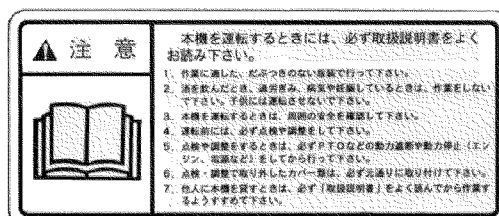 注 意
本機を運転するときには、必ず取扱説明書をよく
お読み下さい。
1. 作業に適した、だぶつきのない服装で行って下さい。
2. 酒を飲んだとき、過労ぎみ、病気や妊娠しているときは、作業をしない
で下さい。子供には運転させないで下さい。
3. 本機を運転するときは、周囲の安全を確認して下さい。
4. 運転前には、必ず点検や調整をして下さい。
5. 点検や調整をするときは、必ずPTOなどの動力遮断や動力停止（エン
ジン、電源など）をしてから行って下さい。
6. 点検・調整で取り外したカバー類は、必ず元通りに取り付けて下さい。
7. 他人に本機を貸すときは、必ず「取扱説明書」をよく読んでから作業す
るようすすめて下さい。